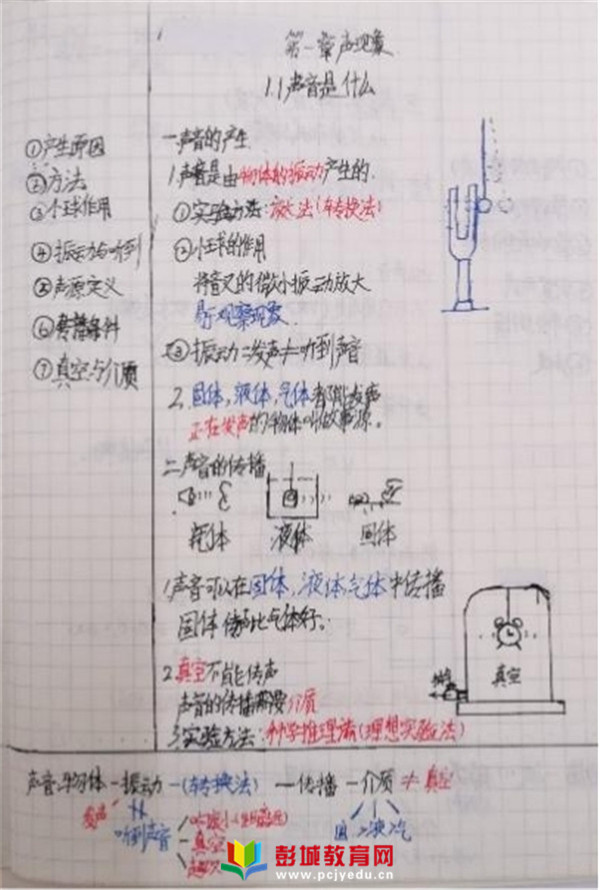 第一章声现象
1.1声音是什么
①产生原因
②方法
③小球作用
④振动与听到
⑤声源定义
⑥传播条件
⑦真空与介质
一.声音的产生
1.声音是由物体的振动产生的.
①实验方法:放大法(转换法)
②小球的作用
将音叉的微小振动放大
易于观察现象.
③振动=发声≠听到声音
2.固体,液体,气体都能发声
正在发声的物体叫做声源。
二.声音的传播
气体 液体 固体
1.声音可以在固体,液体,气体中传播
固体传声比气体好。
2.真空不能传声
声音的传播需要介质
3.实验方法:科学推理法(理想实验法)
真空
声音-物体-振动-(转换法)-传播-介质≠真空
发声
听到声音
真空
固 液 气
彭城教育网
www.pcjyedu.cn